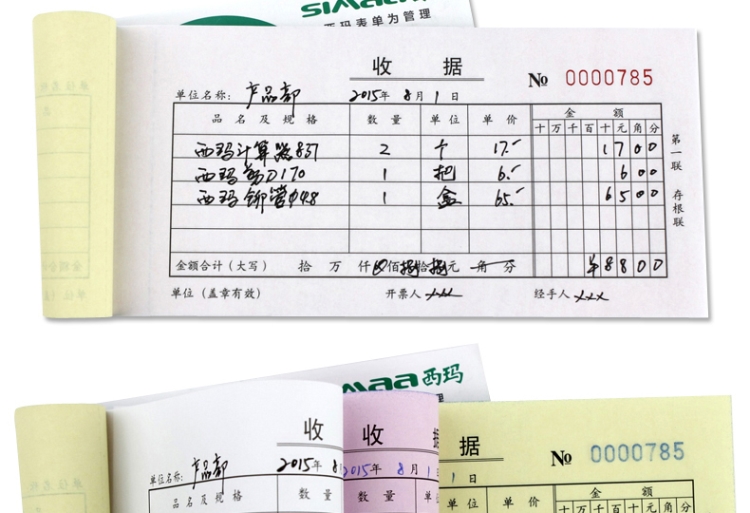 西玛表单为管理
收 据
№ 0000785
单位名称: 产品部 2015年 8月 1日
品名及规格 数量 单位 单价 金额
十万千百十元角分
西玛计算器837 2 个 17.- 1700
西玛剪刀170 1 把 6.- 600
西玛铆管φ48 1 盒 65.- 6500
金额合计(大写) 拾 万 仟 佰捌拾捌元 角 分 ¥8800
单位(盖章有效) 开票人 xxx 经手人 xxx
第一联 存根联
西玛
收 收 据
№ 0000785
单位名称: 产品部 2015年 8 2015年 8月 1 1日
品名及规格 数量 数量 单位 单价 金额
十万千百十元角分